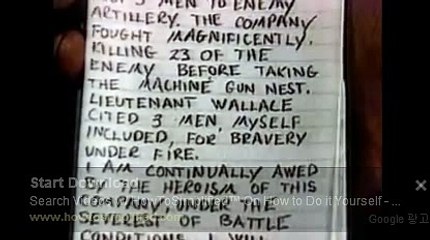 3 MEN TO ENEMY
ARTILLERY. THE COMPANY
FOUGHT MAGNIFICENTLY.
KILLING 23 OF THE
ENEMY BEFORE TAKING
THE MACHINE GUN NEST.
LIEUTENANT WALLACE
CITED 3 MEN, MYSELF
INCLUDED, FOR BRAVERY
UNDER FIRE.
I AM CONTINUALLY AWED
BY THE HEROISM OF THIS
COMPANY UNDER THE
OF BATTLE
CONDITIONS. I WILL
Start Download
On How to Do it Yourself - ...
Google 광고